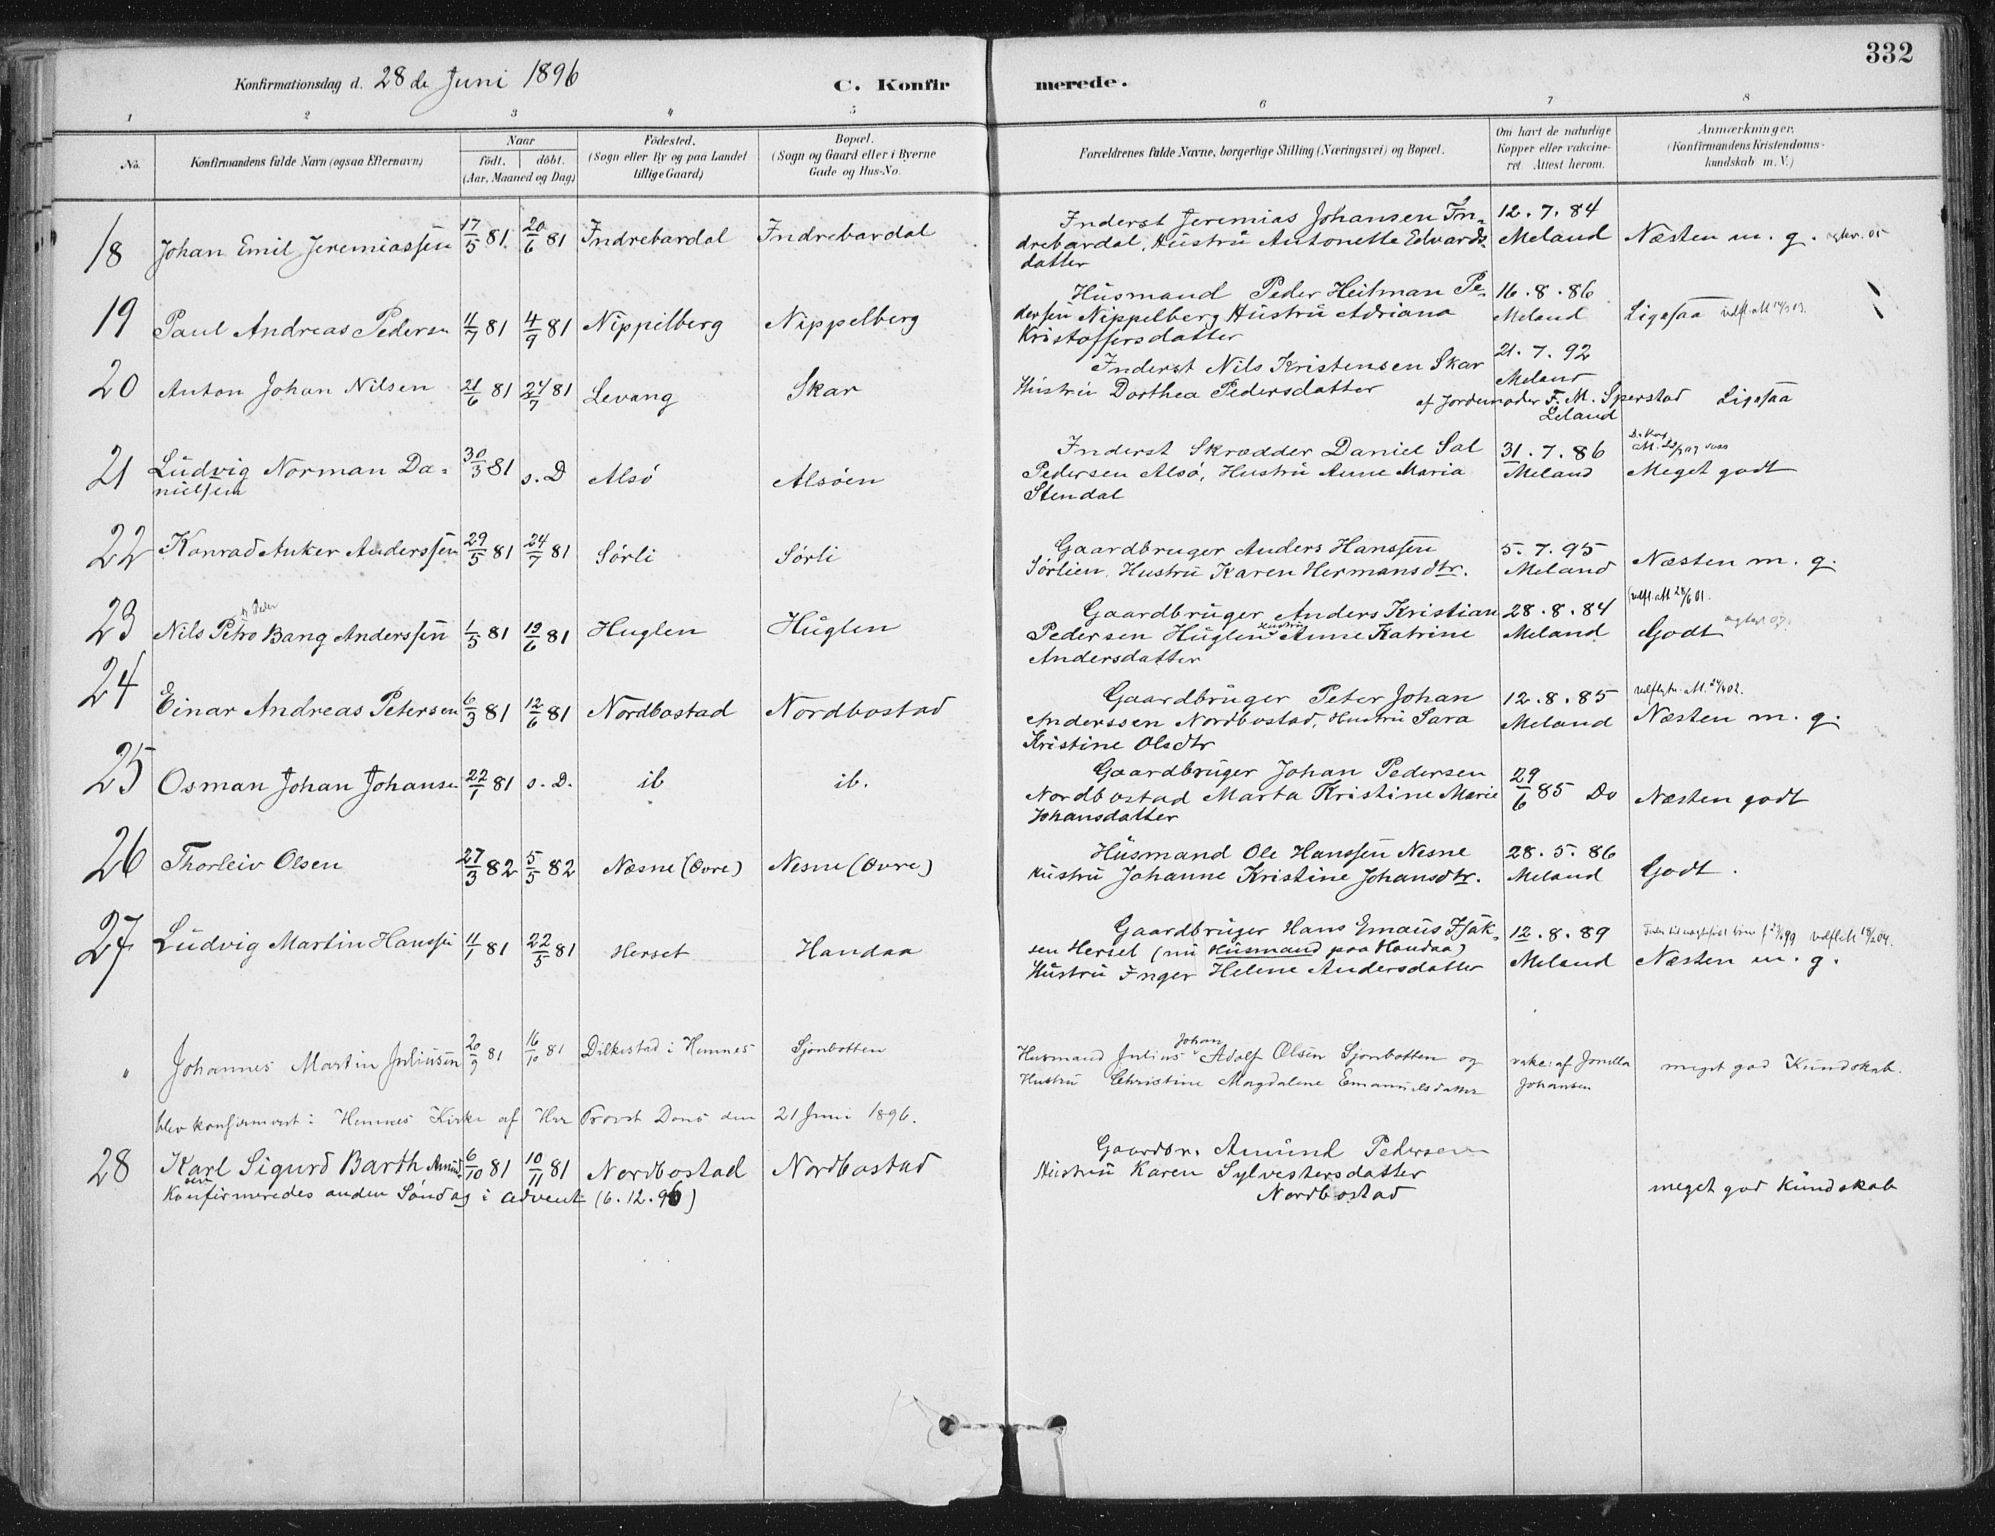 332
Konfirmationsdag d. 28de Juni 1896
C. Konfirmerede.
1 2 3 4 5 6 7 8
No.
Konfirmandens fulde Navn (ogsaa Efternavn)
Naar
födt. döbt.
(Aar, Maaned og Dag)
Födested.
(Sogn eller By og paa Landet
tillige Gaard)
Bopæl.
(Sogn og Gaard eller i Byerne
Gade og Hus-No.
Forældrenes fulde Navne, borgerlige Stilling (Næringsvei) og Bopæl.
Om havt de naturlige
Kopper eller vakcine-
ret. Attest herom.
Anmærkninger.
(Konfirmandens Kristendoms-
kundskab m. V.)
18 Johan Emil Jeremiassen 17/5 81. 20/6 81 Indrebardal Indrebardal
Inderst Jeremias Johansen In-
drebardal, Hustru Antonette Edvards-
datter
12.7.84
Meland
Næsten m. g.
19 Paul Andreas Pedersen 11/7 81 4/9 81 Nippilberg Nippelberg
Husmand Peder Heitman Pe-
dersen Nippelberg Hustru Adriana
Kristoffersdatter
16.8.86
Meland
Ligesaa
20 Anton Johan Nilsen 21/6 81 24/7 81 Levang Skar
Inderst Nils Kristensen Skar
Hustru Dorthea Pedersdatter
21.7.92
Meland
af Jordemoder F. M. Sperstad
Leland
Ligesaa
21 Ludvig Norman Da-
nielsen 30/3 81 s. D Alsö Alsöen
Inderst Skrædder Daniel Sal
Pedersen Alsö, Hustru Anne Maria
Stendal
31.7.86
Meland
Meget godt
22 Konrad Anker Anderssen 29/5 81 24/7 81 Sörli Sörli
Gaardbruger Anders Hanssen
Sörlien, Hustru Karen Hermansdtr.
5.7.95
Meland
Næsten m. g.
23 Nils Petro Bang Anderssen 1/5 81 12/6 81 Huglen Huglen
Gaardbruger Anders Kristian
Pedersen Huglen Hustru Anne Katrine
Andersdatter
28.8.84
Meland
Godt
24 Einar Andreas Petersen 6/3 81 12/6 81 Nordbostad Nordbostad
Gaardbruger Peter Johan
Anderssen Nordbostad, Hustru Sara
Kristine Olsdtr
12.8.85
Meland
Næsten m. g.
25 Osman Johan Johansen 22/1 81 s. D. ib ib.
Gaardbruger Johan Pedersen
Nordbostad Marta Kristine Marie
Johansdatter
29/6 85 Do
Næsten godt
26 Thorleiv Olsen 27/3 82 5/5 82 Næsne (Övre) Nesne (Övre)
Husmand Ole Hanssen Nesne
Hustru Johanne Kristine Johansdtr.
28.5.86
Meland
Godt.
27 Ludvig Martin Hanssen 11/1 81 22/5 81 Herset Handaa
Gaardbruger Hans Emaus Isak-
sen Herset (nu Husmand paa Handaa)
Hustru Inger Helene Andersdatter
12.8.89
Meland
Næsten m. g.
" Johannes Martin Juliusen 20/9 81 16/10 81 Dilkestad i Hemnes Sjonbotten
Husmand Julius Johan Adolf Olsen Sjonbotten og
Hustru Christine Magdalene Emanuelsdatter
vakc: af Jonetta
Johansen
meget god Kundskab.
blev konfirmeret i Hemnes Kirke af Hr Provst Dons den 21 Juni 1896.
28 Karl Sigurd Barth Amund-
sen 6/10 81 10/11 81 Nordbostad Nordbostad
Konfirmeredes anden Söndag i advent (6.12.96)
Gaardbr. Amund Pedersen
Hustru Karen Sylvestersdatter
Nordbostad
meget god Kundskab